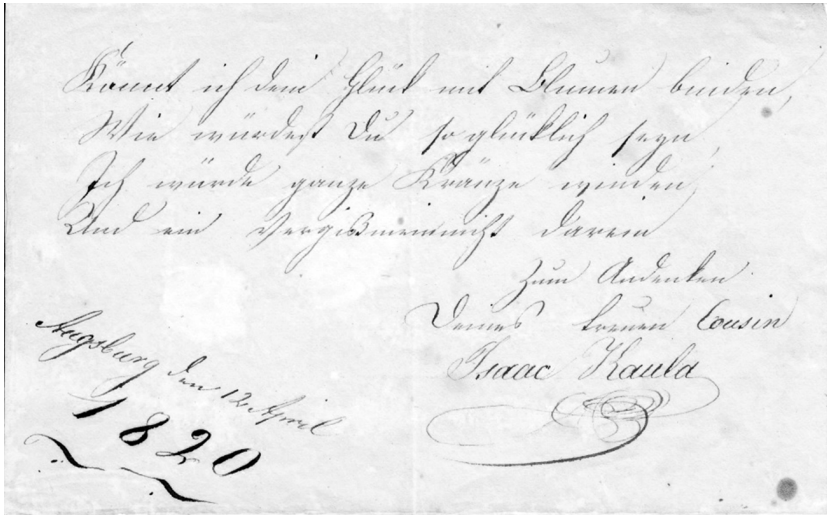 Könnt ich dein Glück mit Blumen binden,
Wie würdest Du so glücklich seyn,
Ich würde ganze Kränze winden,
Und ein Vergißmeinnicht darein
Zum Andenken
Deines treuen Cousin
Isaac Kaula
Augsburg den 12 April
1820